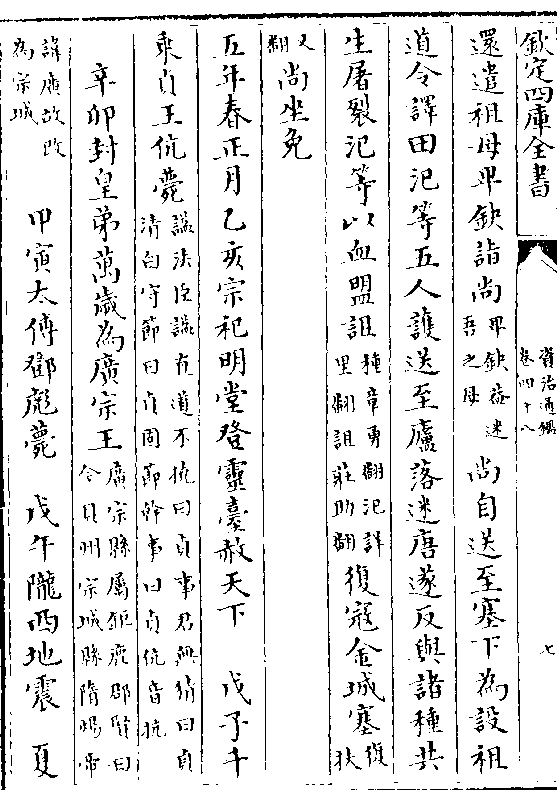 欽定四庫全書
資治通鑑
卷四十八
七
還遣祖母卑缺詣尚卑缺蓋迷吾之母尚自送至塞下為設祖
道令譯田汜等五人護送至廬落迷唐遂反與諸種共
生屠裂汜等以血盟詛種章勇翻汜詳里翻詛莊助翻復寇金城塞復扶
又翻尚坐免
五年春正月乙亥宗祀明堂登靈臺赦天下　戊子千
乘貞王伉薨諡法臣諡有道不撓曰貞事君無猜曰貞清白守節曰貞固節幹事曰貞伉音抗
辛卯封皇弟萬歲為廣宗王廣宗縣屬鉅鹿郡賢曰今貝州宗城縣隋煬帝
諱廣故改為宗城　甲寅太傅鄧彪薨　戊午隴西地震　夏